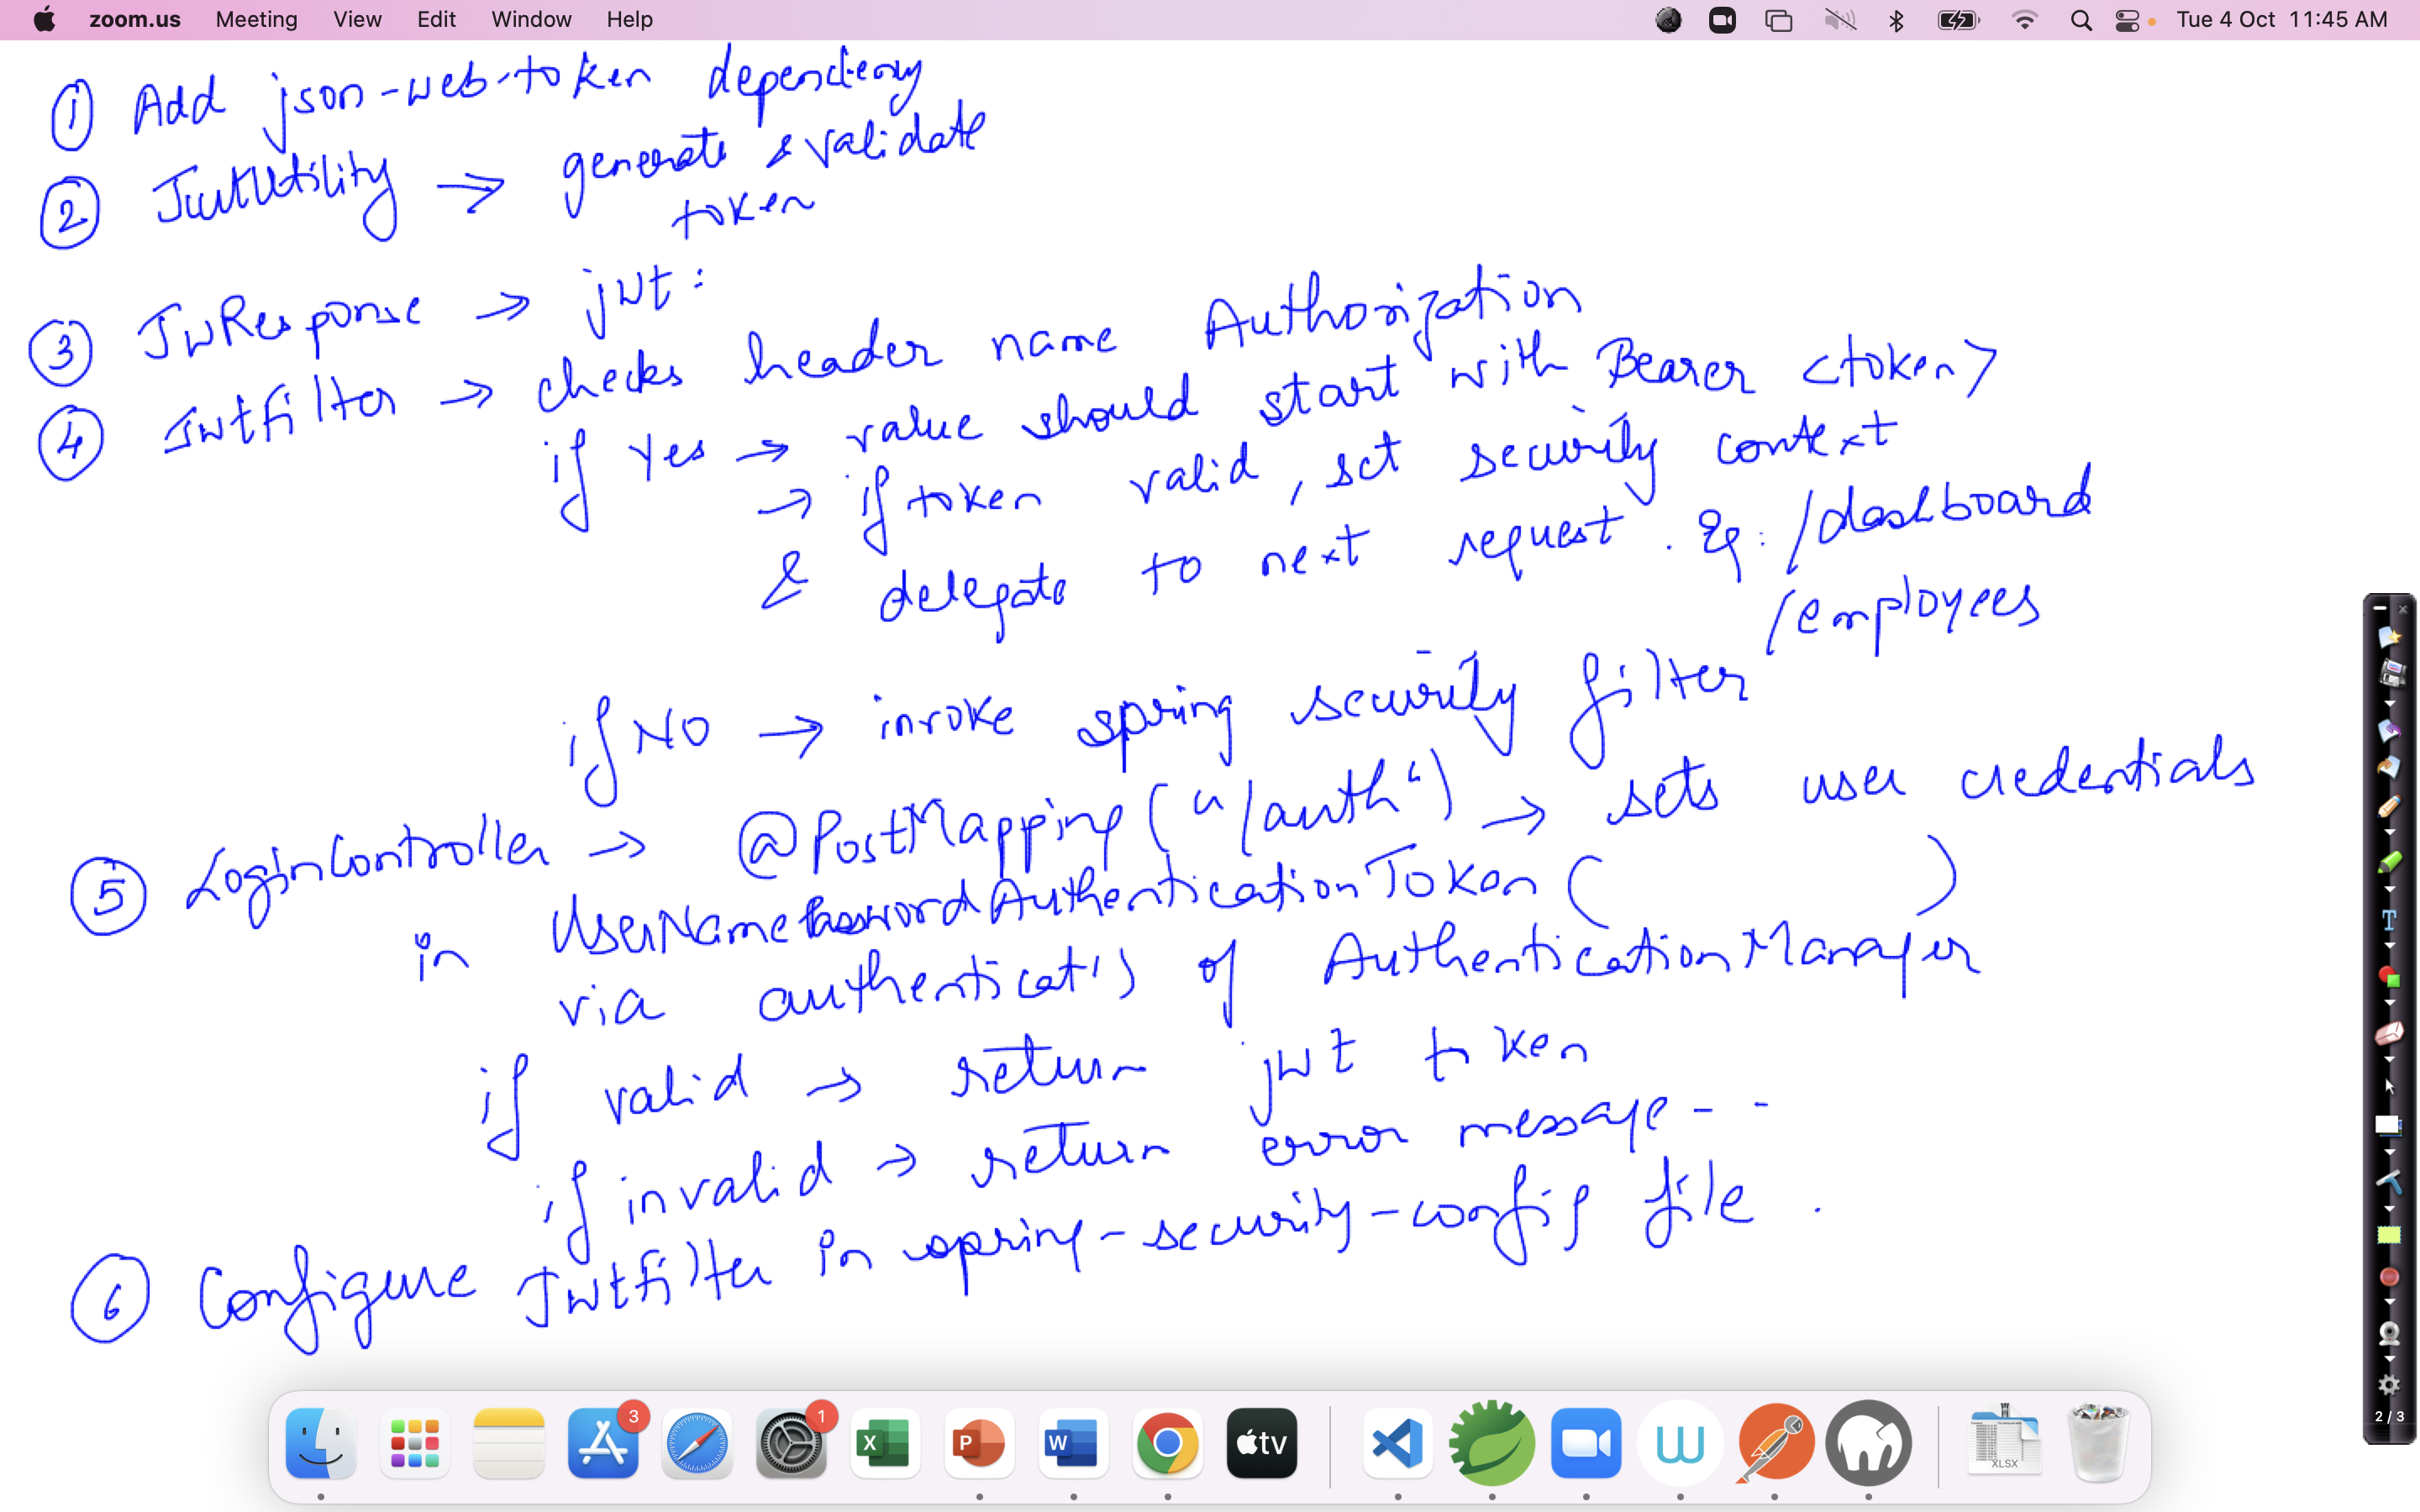 zoom.us Meeting View Edit Window Help Tue 4 Oct 11:45 AM
① Add json-web-token dependency
② JwtUtility → generate & validate
token
③ JwResponse → jwt:
④ Jwtfilter → checks header name Authorization
if Yes → value should start with Bearer <token>
→ if token valid, set security context
& delegate to next request. Eg: /dashboard
/employees
if NO → invoke spring security filter
⑤ LoginController → @PostMapping("/auth") → sets user credentials
in UserNamePasswordAuthenticationToken( )
via authenticat() of AuthenticationManager
if valid → return jwt token
if invalid → return error message - -
⑥ Configure Jwtfilter in spring-security-config file.
T
2 / 3
3
1
X
P
W
tv
W
XLSX